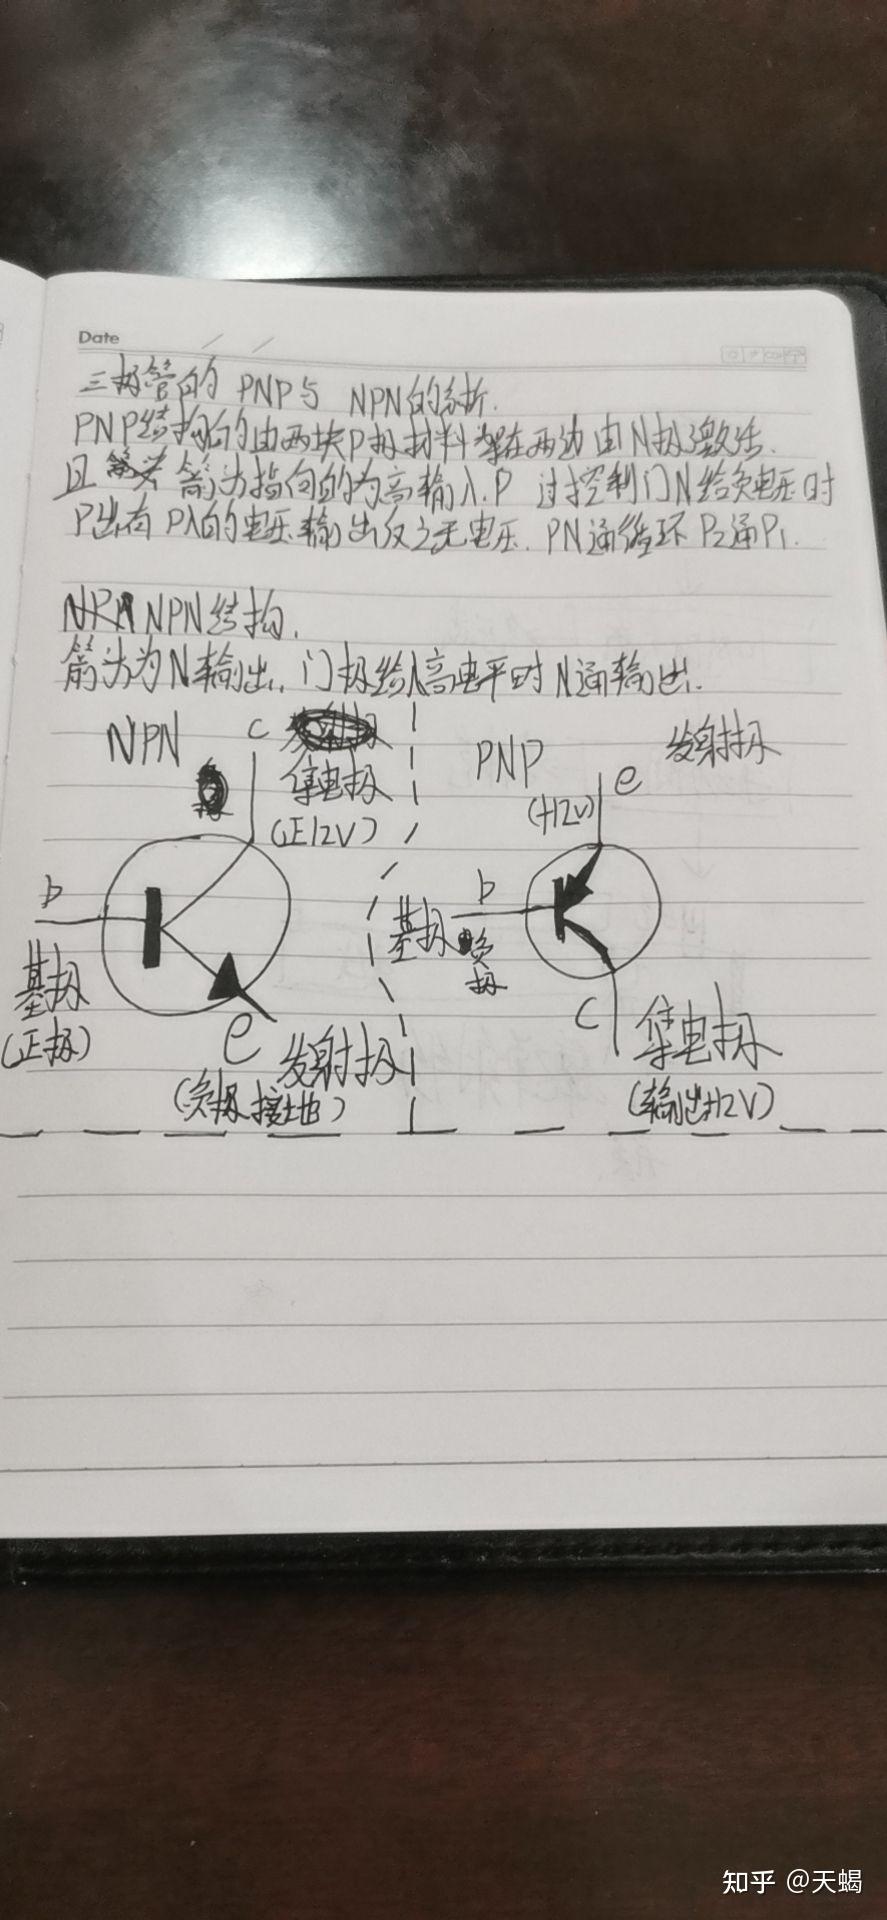 Date
三极管的 PNP与 NPN的分析.
PNP结构的由两块P极材料架在两边由N极激活.
且 箭头指向的为高输入.P 过控制门N给负电压时
P出有P入的电压输出反之无电压. PN通循环P2通P1.
NPN结构.
箭头为N输出. 门极给入高电平时N通输出.
NPN
c
集电极
(正12V)
b
基极
(正极)
e 发射极
(负极接地)
PNP
e 发射极
(+12V)
b
基极 负极
c 集电极
(输出+12V)
知乎 @天蝎